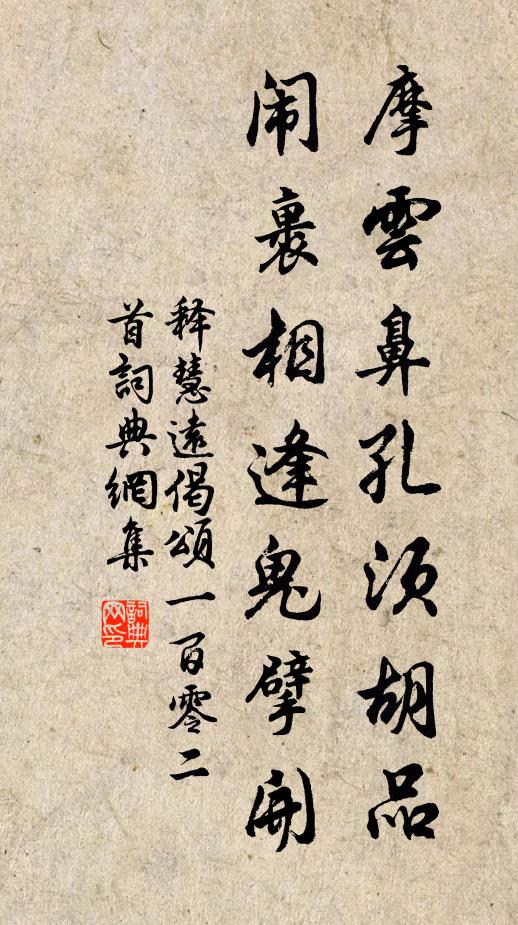 摩雲鼻孔須胡品
闹裏相逢鬼擘開
释慧遠偈頌一百零二
首詞典網集
詞典网印